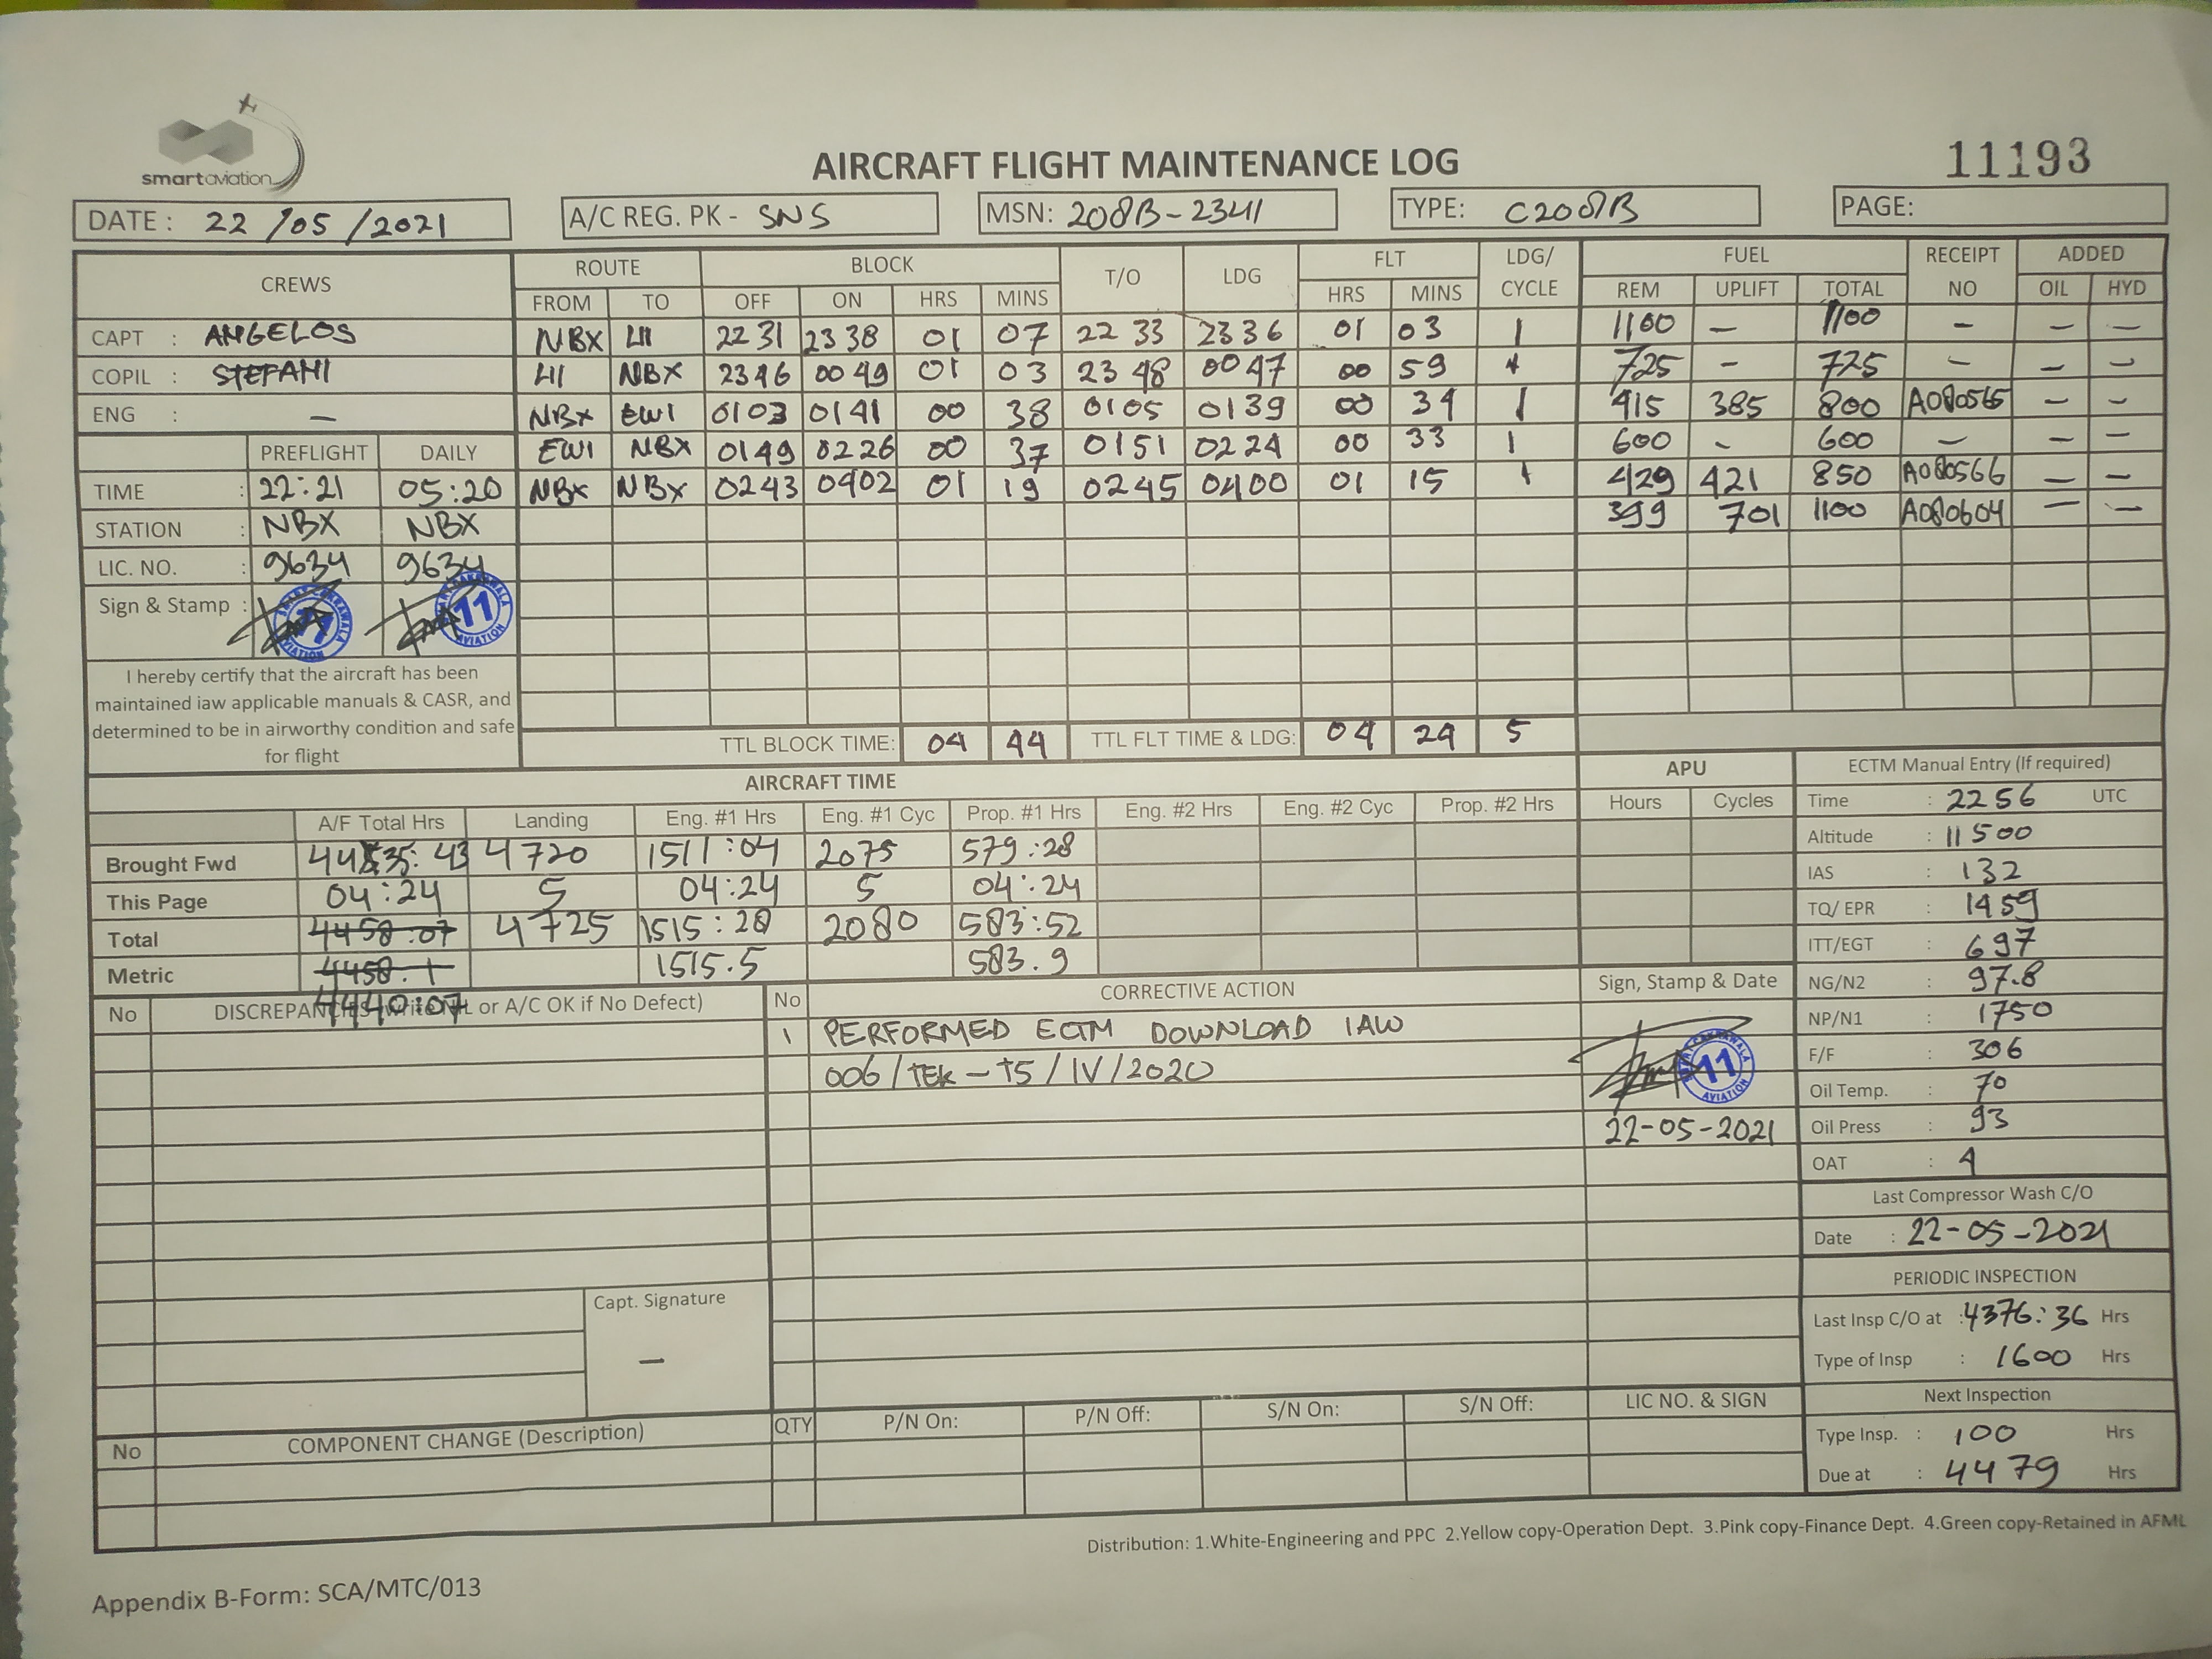 smartaviation
AIRCRAFT FLIGHT MAINTENANCE LOG
11193
DATE : 22 /05 /2021
A/C REG. PK - SNS
MSN: 208B-2341
TYPE: C208B
PAGE:
CREWS ROUTE BLOCK T/O LDG FLT LDG/ CYCLE FUEL RECEIPT NO ADDED
FROM TO OFF ON HRS MINS HRS MINS REM UPLIFT TOTAL OIL HYD
CAPT : ANGELOS NBX LII 22 31 23 38 01 07 22 33 23 36 01 03 1 1100 — 1100 — — —
COPIL : STEFANI LII NBX 2346 0049 01 03 23 48 0047 00 59 1 725 – 725 — — —
ENG : — NBX EWI 0103 0141 00 38 0105 0139 00 34 1 415 385 800 A080565 — —
PREFLIGHT DAILY EWI NBX 0149 0226 00 37 0151 0224 00 33 1 600 - 600 — — —
TIME : 22:21 05:20 NBX NBX 0243 0402 01 19 0245 0400 01 15 1 429 421 850 A080566 — —
STATION : NBX NBX 399 701 1100 A080604 — —
LIC. NO. : 9634 9634
Sign & Stamp :
11 AVIATION
11 AVIATION
I hereby certify that the aircraft has been
maintained iaw applicable manuals & CASR, and
determined to be in airworthy condition and safe
for flight
TTL BLOCK TIME: 04 44 TTL FLT TIME & LDG: 04 24 5
AIRCRAFT TIME APU ECTM Manual Entry (If required)
A/F Total Hrs Landing Eng. #1 Hrs Eng. #1 Cyc Prop. #1 Hrs Eng. #2 Hrs Eng. #2 Cyc Prop. #2 Hrs Hours Cycles
Brought Fwd 4435:43 4720 1511:04 2075 579:28
This Page 04:24 5 04:24 5 04:24
Total 4458:07 4725 1515:28 2080 583:52
Metric 4458.1 1515.5 583.9
4440:07
Time : 2256 UTC
Altitude : 11500
IAS : 132
TQ/ EPR : 1459
ITT/EGT : 697
NG/N2 : 97.8
NP/N1 : 1750
F/F : 306
Oil Temp. : 70
Oil Press : 93
OAT : 4
Last Compressor Wash C/O
Date : 22-05-2021
PERIODIC INSPECTION
Last Insp C/O at : 4376:36 Hrs
Type of Insp : 1600 Hrs
Next Inspection
Type Insp. : 100 Hrs
Due at : 4479 Hrs
No DISCREPANCIES (write NIL or A/C OK if No Defect) No CORRECTIVE ACTION Sign, Stamp & Date
1 PERFORMED ECTM DOWNLOAD IAW
006/TEK-T5/IV/2020
11 AVIATION
22-05-2021
Capt. Signature
—
No COMPONENT CHANGE (Description) QTY P/N On: P/N Off: S/N On: S/N Off: LIC NO. & SIGN
Distribution: 1.White-Engineering and PPC 2.Yellow copy-Operation Dept. 3.Pink copy-Finance Dept. 4.Green copy-Retained in AFML
Appendix B-Form: SCA/MTC/013